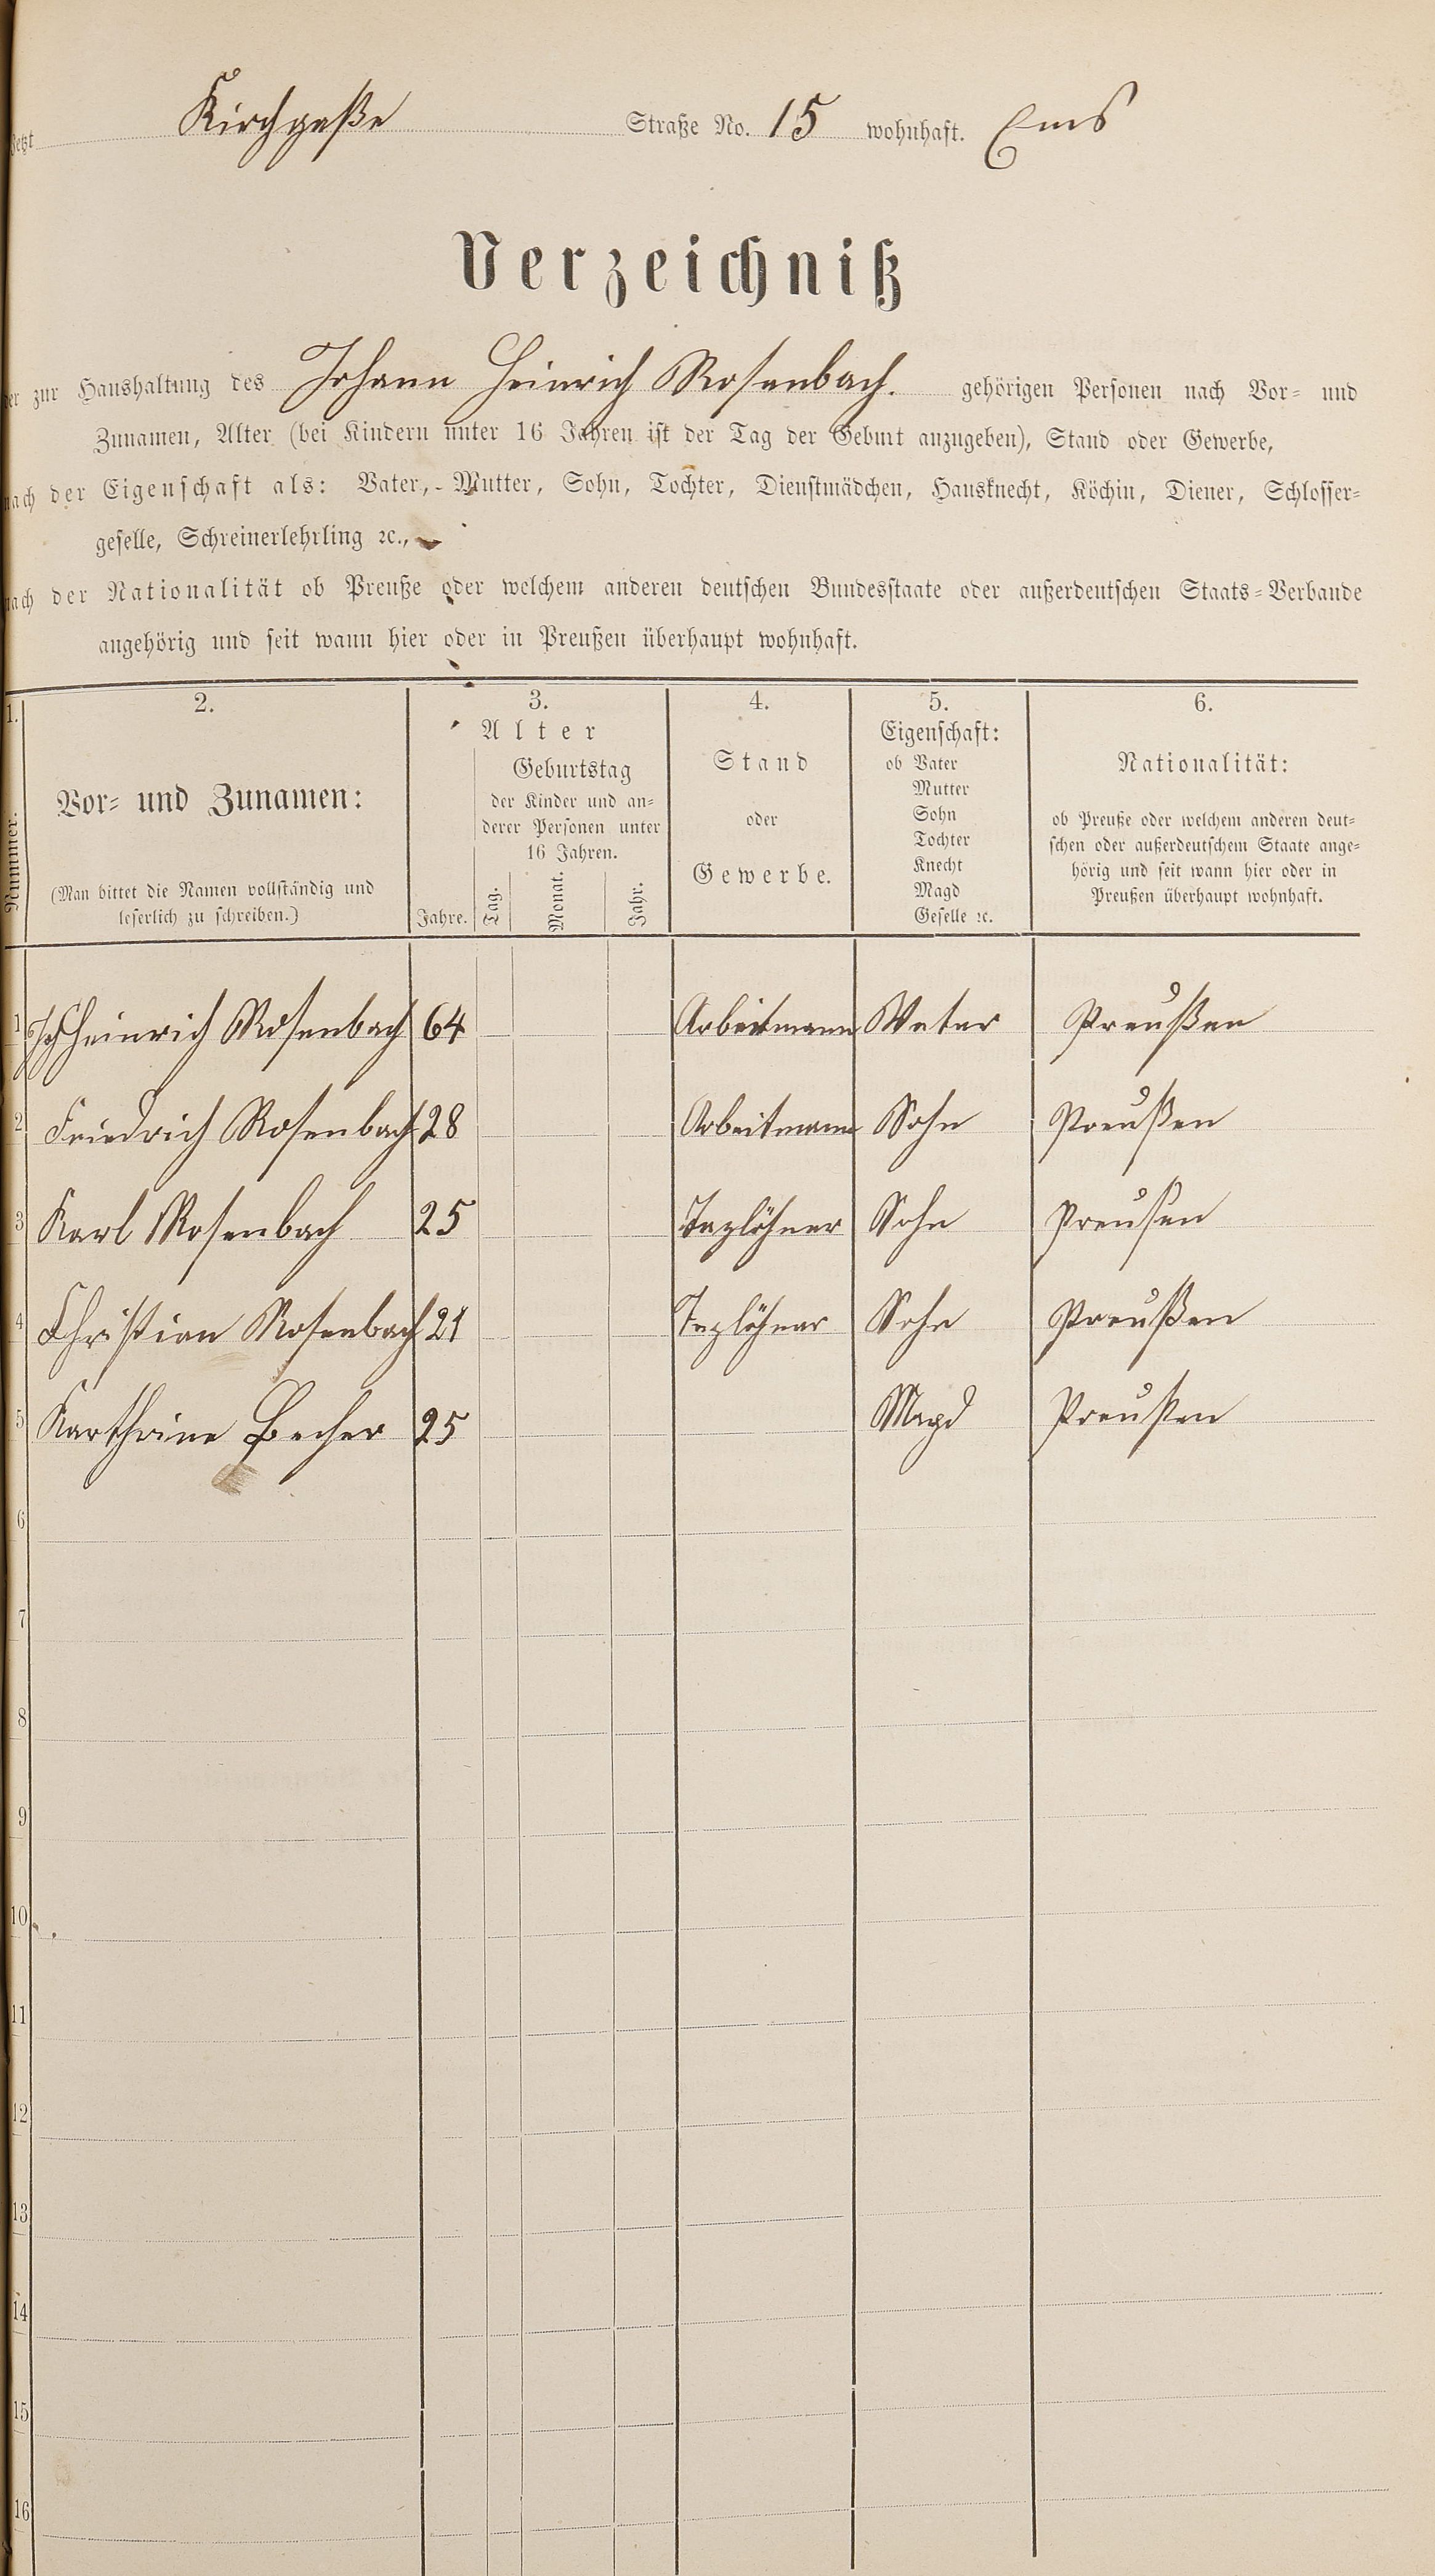 Jetzt Kirchgaße Straße No. 15 wohnhaft. Ems
Verzeichniß
der zur Haushaltung des Johann Heinrich Rosenbach. gehörigen Personen nach Vor- und
Zunamen, Alter (bei Kindern unter 16 Jahren ist der Tag der Geburt anzugeben), Stand oder Gewerbe,
nach der Eigenschaft als: Vater, Mutter, Sohn, Tochter, Dienstmädchen, Hausknecht, Köchin, Diener, Schlosser-
geselle, Schreinerlehrling ꝛc.,
nach der Nationalität ob Preuße oder welchem anderen deutschen Bundesstaate oder außerdeutschen Staats-Verbande
angehörig und seit wann hier oder in Preußen überhaupt wohnhaft.
1. 2. 3. 4. 5. 6.
Nummer.
Vor- und Zunamen:
(Man bittet die Namen vollständig und
leserlich zu schreiben.)
Alter
Jahre.
Geburtstag
der Kinder und an-
derer Personen unter
16 Jahren.
Tag. Monat. Jahr.
Stand
oder
Gewerbe.
Eigenschaft:
ob Vater
Mutter
Sohn
Tochter
Knecht
Magd
Geselle ꝛc.
Nationalität:
ob Preuße oder welchem anderen deut-
schen oder außerdeutschem Staate ange-
hörig und seit wann hier oder in
Preußen überhaupt wohnhaft.
1 Joh Heinrich Rosenbach 64 Arbeitmann Vater Preußen
2 Friedrich Rosenbach 28 Arbeitmann Sohn Preußen
3 Karl Rosenbach 25 Taglöhner Sohn Preusen
4 Christian Rosenbach 21 Taglöhner Sohn Preußen
5 Karthrine Becher 25 Magd Preußen
6
7
8
9
10
11
12
13
14
15
16